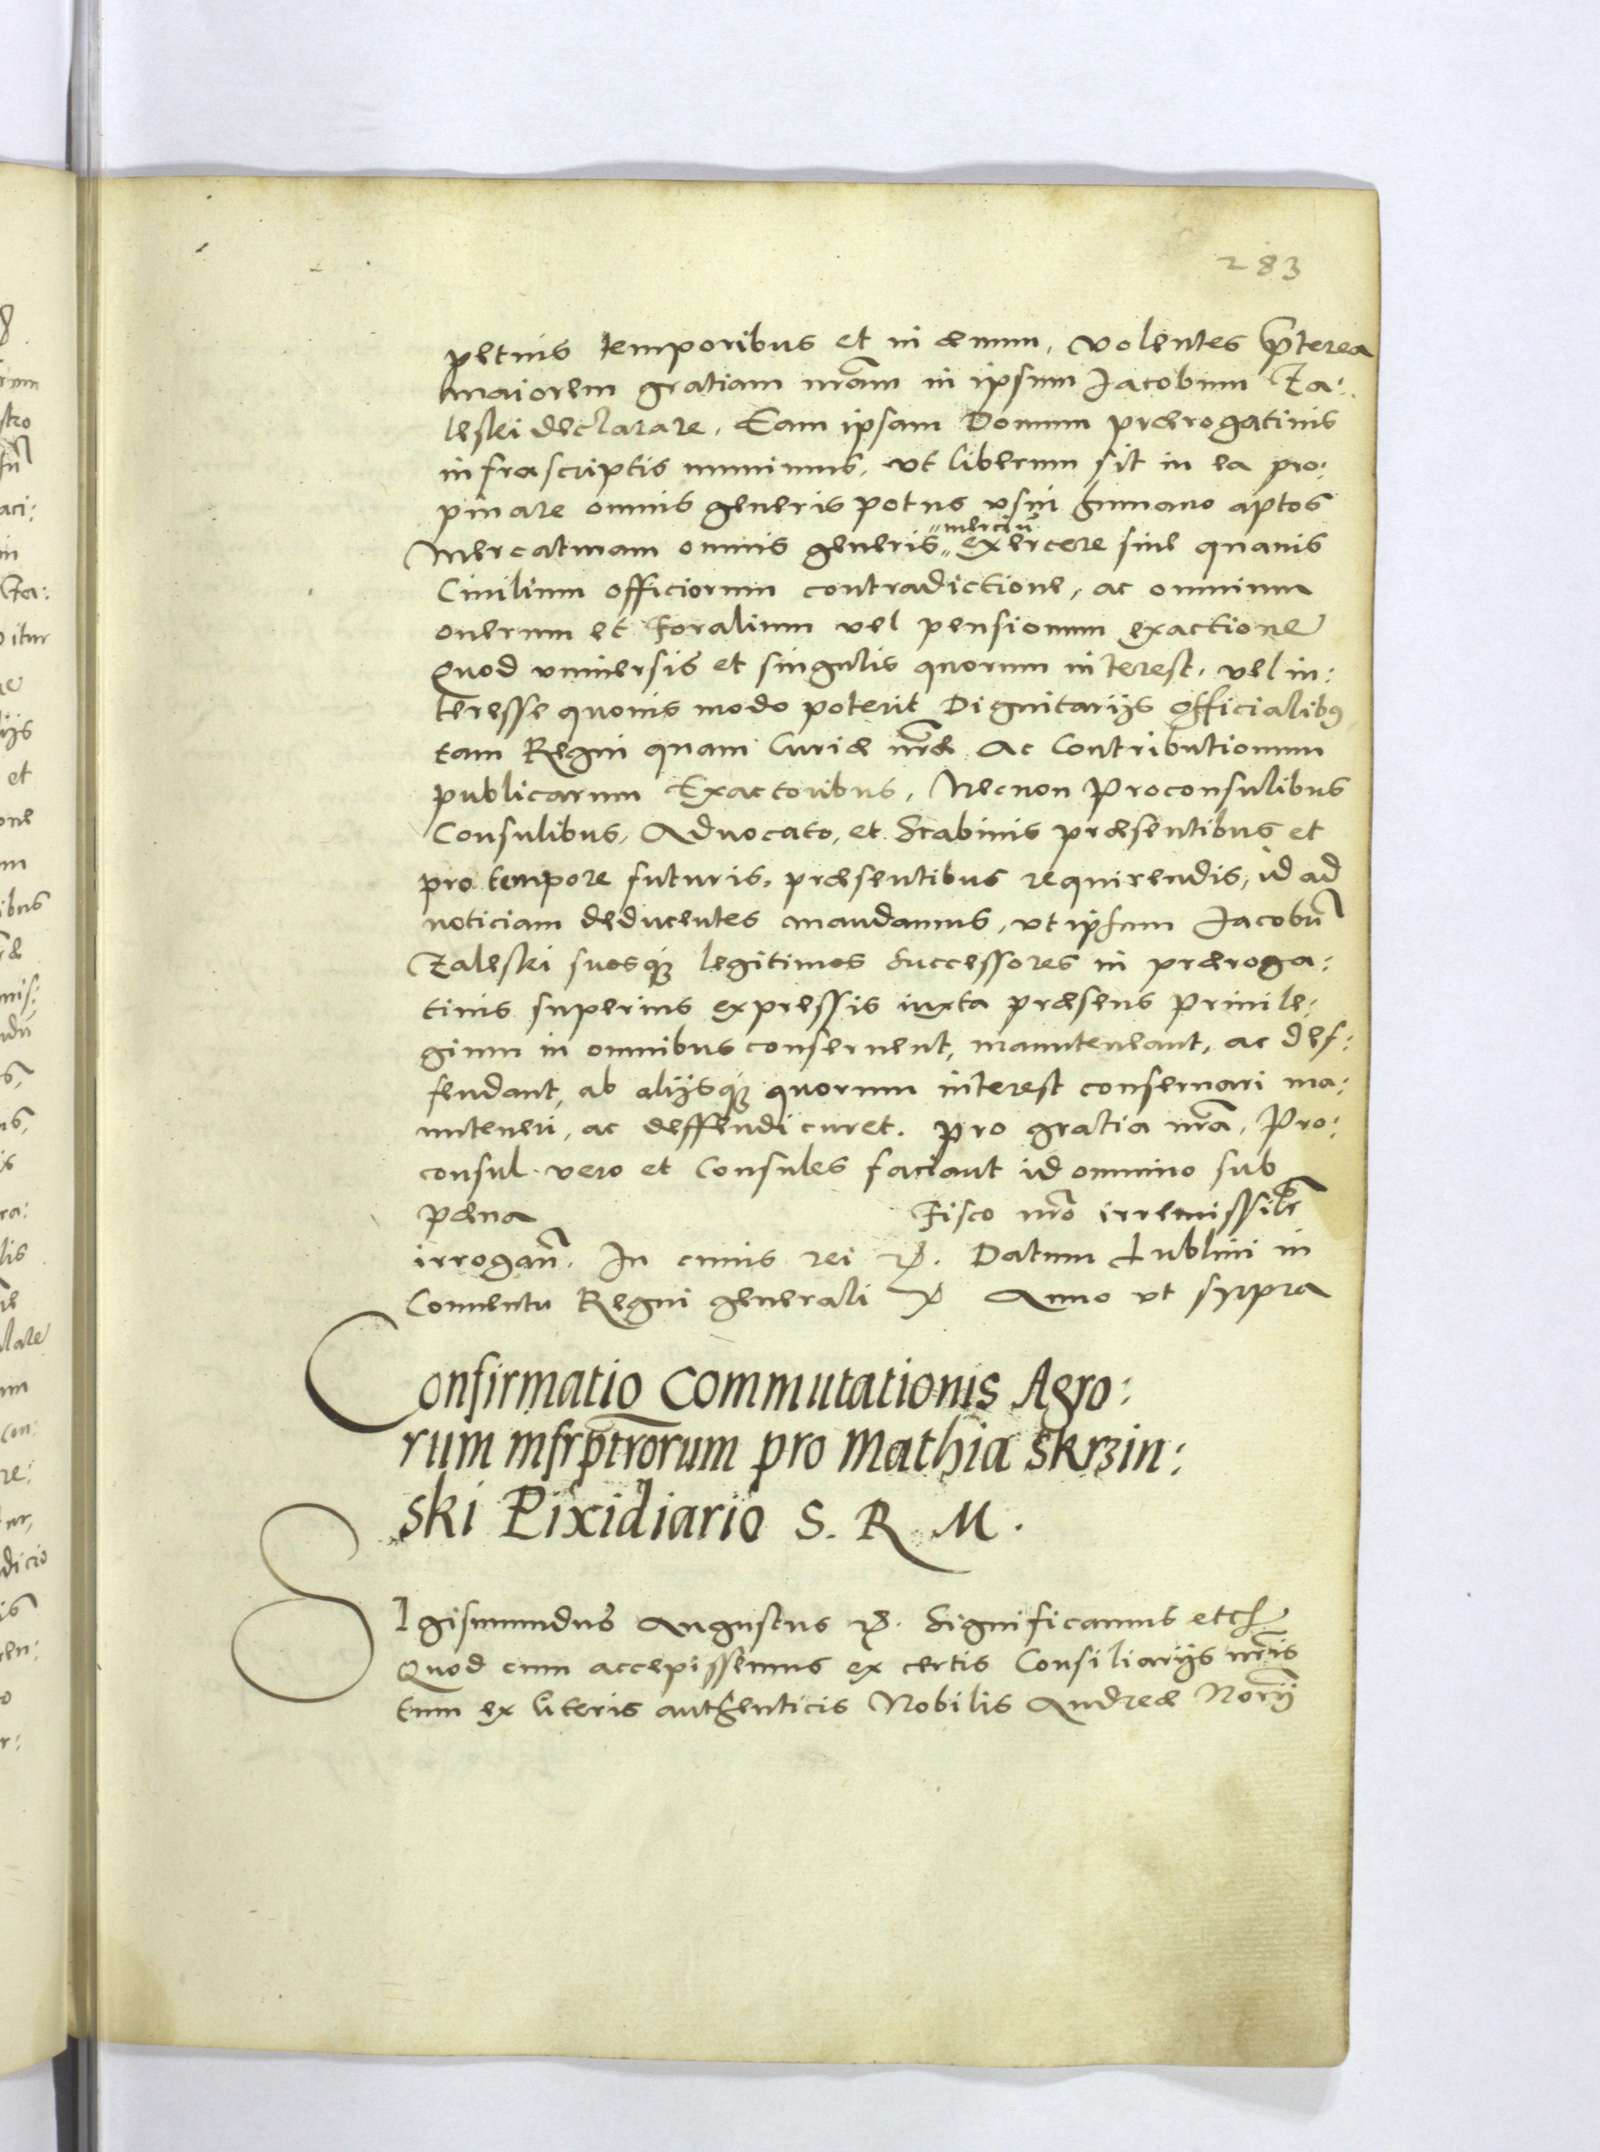 283
petuis temporibus et in æuum, volentes p̃terea
maiorem gratiam nr̃am in ipsum Jacobum Za:
leski declarare, Eam ipsam Domum prærogatiuis
infrascriptis munimus, vt liberum sit in ea pro:
pinare omnis generis potus vsui humano aptos
Mercaturam omnis generis "merciũ" exercere sine quauis
Ciuilium officiorum contradictione, ac omnium
onerum et Foralium vel pensionum exactione
Quod vniuersis et singulis quorum interest, vel in:
teresse quouis modo poterit Dignitarijs Officialibus
tam Regni quam Curiæ nr̃æ Ac Contributionum
publicarum Exactoribus, Necnon Proconsulibus
Consulibus, Aduocato, et Scabinis præsentibus et
pro tempore futuris, præsentibus requirendis, id ad
noticiam deducentes mandamus, vt ipsum Jacobũ
Zaleski suosq3 legitimos Successores in præroga:
tiuis superius expressis iuxta præsens Priuile:
gium in omnibus conseruent, manuteneant, ac def:
fendant, ab alijsq3 quorum interest conseruari ma:
nuteneri, ac deffendi curet. pro gratia nr̃a, Pro:
consul vero et Consules faciant id omnino sub
pæna Fisco nr̃o irremissibilr̃
irrogan̄. In cuius rei etc. Datum Lublini in
Conuentu Regni generali etc Anno vt supra
Confirmatio Commutationis Agro:
rum infrrp̃torum pro Mathia Skrzin:
ski Pixidiario S. R. M.
SIgismundus Augustus etc. Significamus etc
Quod cum accepissemus ex certis Consiliarijs nr̃is
tum ex literis authenticis Nobilis Andreæ